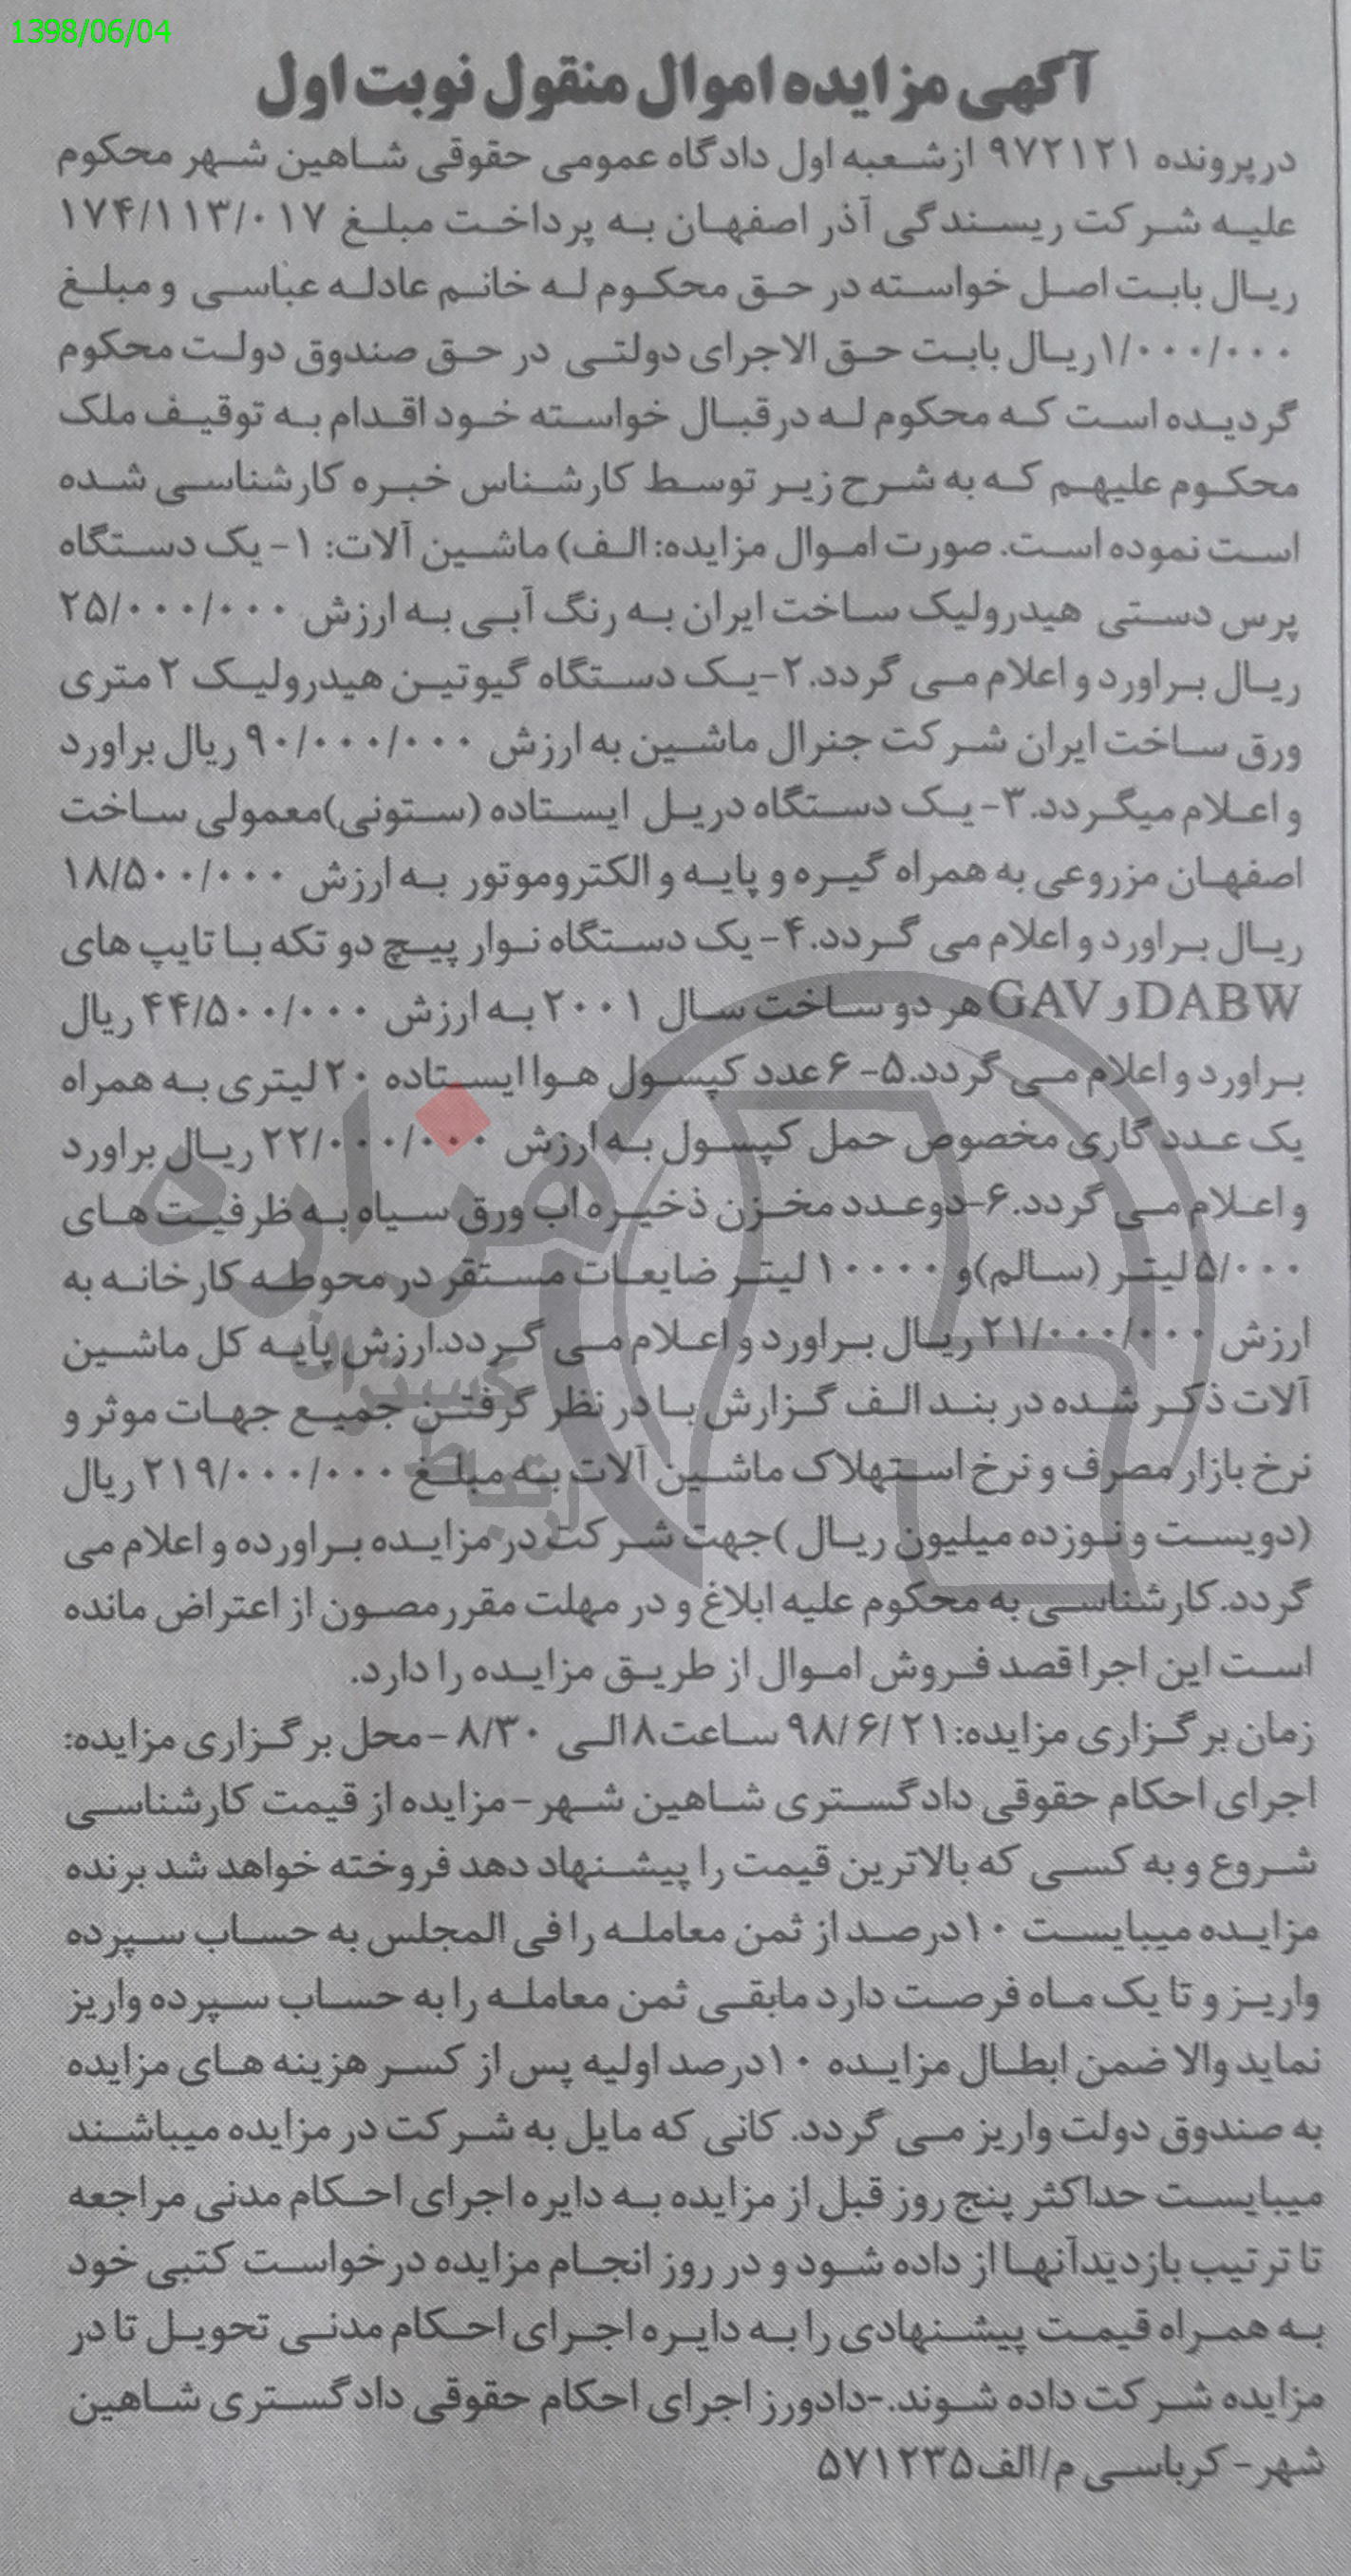 1398/06/04
آگهی مزایده اموال منقول نوبت اول
در پرونده ۹۷۲۱۲۱ از شعبه اول دادگاه عمومی حقوقی شاهین شهر محکوم
علیه شرکت ریسندگی آذر اصفهان به پرداخت مبلغ ۱۷۴/۱۱۳/۰۱۷
ریال بابت اصل خواسته در حق محکوم له خانم عادله عباسی و مبلغ
۱/۰۰۰/۰۰۰ریال بابت حق الاجرای دولتی در حق صندوق دولت محکوم
گردیده است که محکوم له در قبال خواسته خود اقدام به توقیف ملک
محکوم علیهم که به شرح زیر توسط کارشناس خبره کارشناسی شده
است نموده است. صورت اموال مزایده: الف) ماشین آلات: ۱- یک دستگاه
پرس دستی هیدرولیک ساخت ایران به رنگ آبی به ارزش ۲۵/۰۰۰/۰۰۰
ریال براورد و اعلام می گردد. ۲-یک دستگاه گیوتین هیدرولیک ۲ متری
ورق ساخت ایران شرکت جنرال ماشین به ارزش ۹۰/۰۰۰/۰۰۰ ریال براورد
و اعلام میگردد. ۳- یک دستگاه دریل ایستاده (ستونی)معمولی ساخت
اصفهان مزروعی به همراه گیره و پایه و الکتروموتور به ارزش ۱۸/۵۰۰/۰۰۰
ریال براورد و اعلام می گردد. ۴- یک دستگاه نوار پیچ دو تکه با تایپ های
DABW و GAV هر دو ساخت سال ۲۰۰۱ به ارزش ۴۴/۵۰۰/۰۰۰ ریال
براورد و اعلام می گردد. ۵- ۶ عدد کپسول هوا ایستاده ۲۰ لیتری به همراه
یک عدد گاری مخصوص حمل کپسول به ارزش ۲۲/۰۰۰/۰۰۰ ریال براورد
و اعلام می گردد. ۶-دو عدد مخزن ذخیره اب ورق سیاه به ظرفیت های
۵/۰۰۰ لیتر (سالم)و ۱۰۰۰۰ لیتر ضایعات مستقر در محوطه کارخانه به
ارزش ۲۱/۰۰۰/۰۰۰ ریال براورد و اعلام می گردد.ارزش پایه کل ماشین
آلات ذکر شده در بند الف گزارش با در نظر گرفتن جمیع جهات موثر و
نرخ بازار مصرف و نرخ استهلاک ماشین آلات به مبلغ ۲۱۹/۰۰۰/۰۰۰ ریال
(دویست و نوزده میلیون ریال )جهت شرکت در مزایده براورده و اعلام می
گردد. کارشناسی به محکوم علیه ابلاغ و در مهلت مقرر مصون از اعتراض مانده
است این اجرا قصد فروش اموال از طریق مزایده را دارد.
زمان برگزاری مزایده: ۹۸/۶/۲۱ ساعت ۸ الی ۸/۳۰ - محل برگزاری مزایده:
اجرای احکام حقوقی دادگستری شاهین شهر - مزایده از قیمت کارشناسی
شروع و به کسی که بالاترین قیمت را پیشنهاد دهد فروخته خواهد شد برنده
مزایده میبایست ۱۰ درصد از ثمن معامله را فی المجلس به حساب سپرده
واریز و تا یک ماه فرصت دارد مابقی ثمن معامله را به حساب سپرده واریز
نماید والا ضمن ابطال مزایده ۱۰ درصد اولیه پس از کسر هزینه های مزایده
به صندوق دولت واریز می گردد. کانی که مایل به شرکت در مزایده میباشند
میبایست حداکثر پنج روز قبل از مزایده به دایره اجرای احکام مدنی مراجعه
تا ترتیب بازدید آنها از داده شود و در روز انجام مزایده درخواست کتبی خود
به همراه قیمت پیشنهادی را به دایره اجرای احکام مدنی تحویل تا در
مزایده شرکت داده شوند.-دادورز اجرای احکام حقوقی دادگستری شاهین
شهر - کرباسی م/الف ۵۷۱۲۳۵
هزاره
گستران
ارتباط